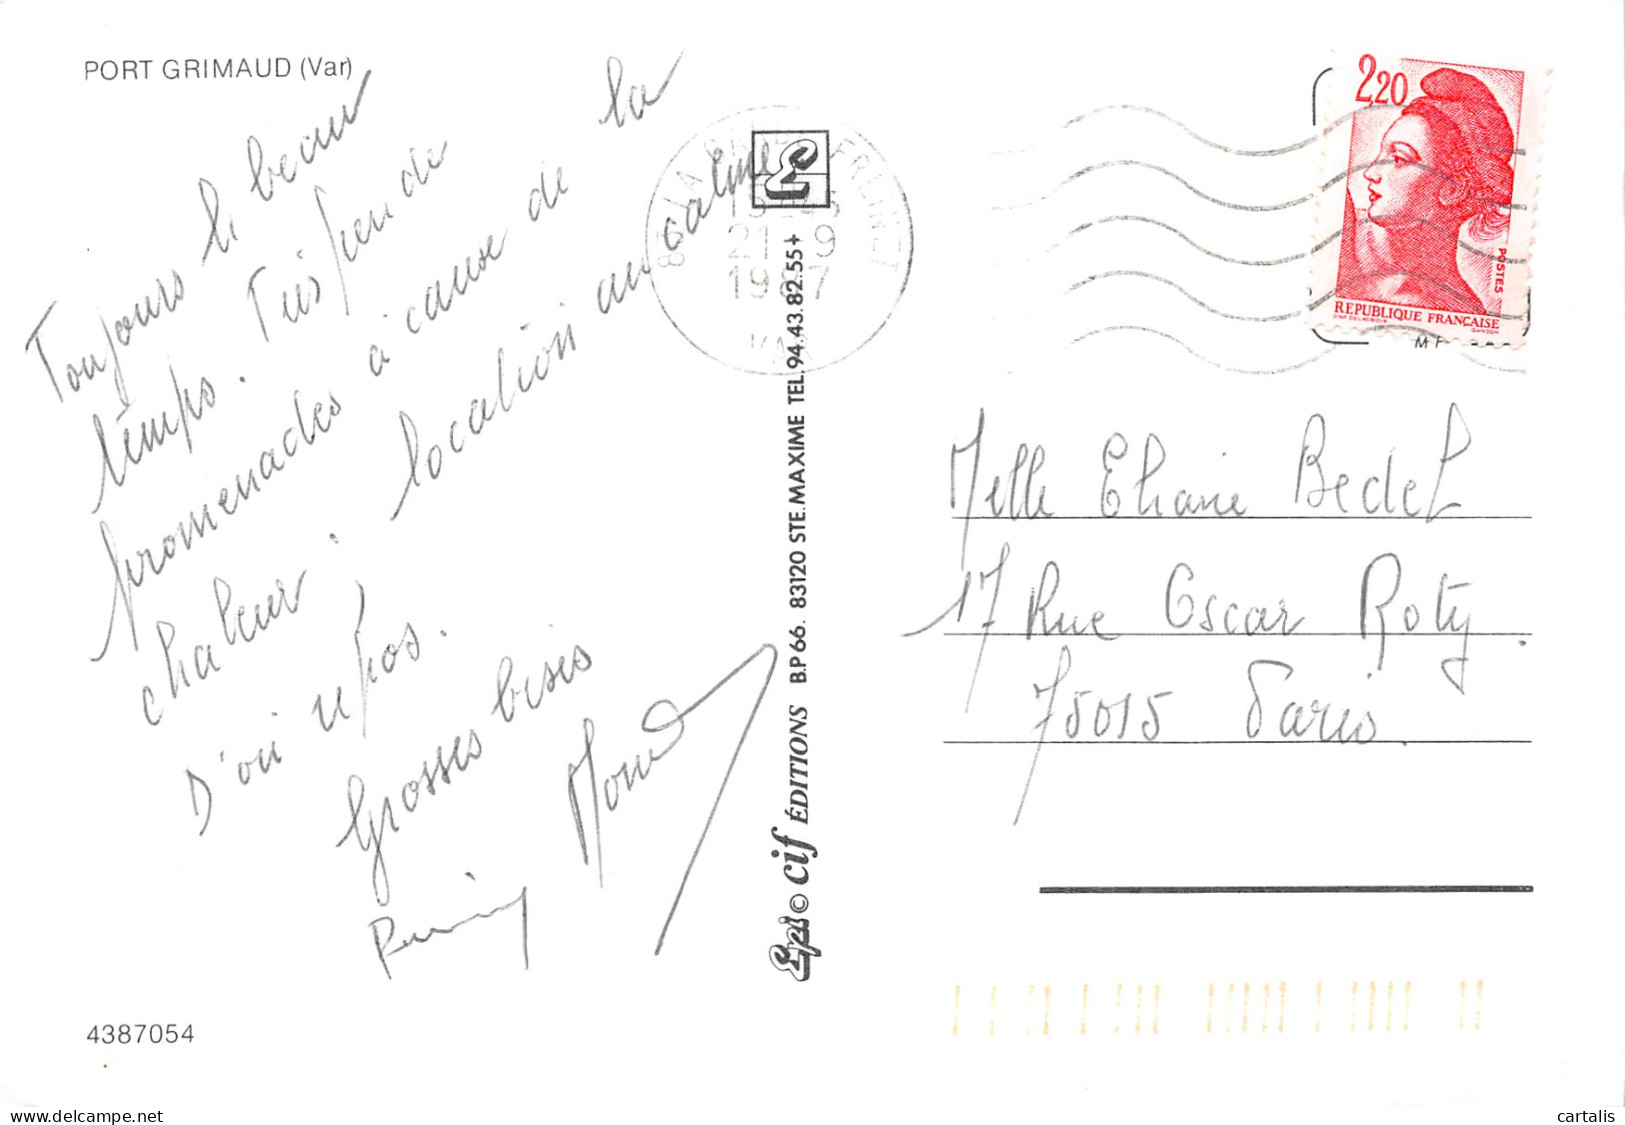 PORT GRIMAUD (Var)
Toujours le beau
temps. Très peu de
promenades à cause de la
chaleur. location au calme
D'où repos.
Grosses bises
4387054
Epi © cif ÉDITIONS B.P 66. 83120 STE.MAXIME TEL.94.43.82.55+
FREINET
21 9
VAR
2,20
POSTES
REPUBLIQUE FRANÇAISE
D'AP DELACROIX
GANDON
Melle Eliane Bedel
17 Rue Oscar Roty.
75015 Paris.
delcampe.net
cartalis